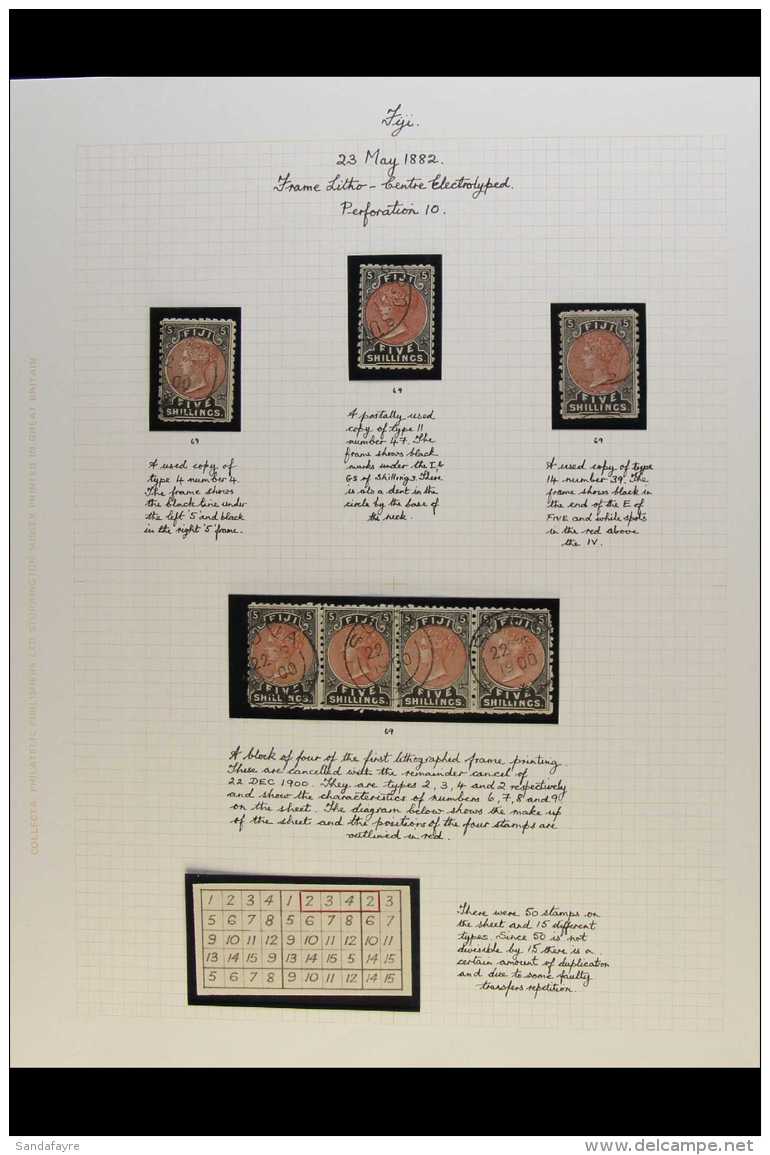 Fiji.
23 May 1882.
Frame Litho - Centre Electrotyped.
Perforation 10.
5 FIJI 5
FIVE
SHILLINGS.
69
A used copy of
type 4 number 4.
The frame shows
the black line under
the left '5' and black
in the 'right' '5' frame.
5 FIJI 5
FIVE
SHILLINGS.
69
A postally used
copy of type 11
number 47. The
frame shows black
marks under the I &
GS of Shillings. There
is also a dent in the
circle by the base of
the neck.
5 FIJI 5
FIVE
SHILLINGS.
69
A used copy of type
14 number 39. The
frame shows black in
the end of the E of
FIVE and white spots
in the red above
the IV.
FIJI FIJI FIJI FIJI
22 22 22
00 1900
FIVE FIVE FIVE FIVE
SHILLINGS. SHILLINGS. SHILLINGS. SHILLINGS.
69
A block of four of the first lithographed frame printing.
These are cancelled with the remainder cancel of
22 DEC 1900. They are types 2, 3, 4 and 2 respectively
and show the characteristics of numbers 6, 7, 8 and 9
on the sheet. The diagram below shows the make up
of the sheet and the positions of the four stamps are
outlined in red.
1 2 3 4 1 2 3 4 2 3
5 6 7 8 5 6 7 8 6 7
9 10 11 12 9 10 11 12 10 11
13 14 15 13 14 15 5 14 15
5 6 7 8 9 10 11 12 14 15
There were 50 stamps on
the sheet and 15 different
types. Since 50 is not
divisible by 15 there is a
certain amount of duplication
and due to some faulty
transfers repetition.
COLLECTA PHILATELIC PUBLISHERS LTD STORRINGTON SUSSEX PRINTED IN GREAT BRITAIN
Sandafayre
delcampe.net